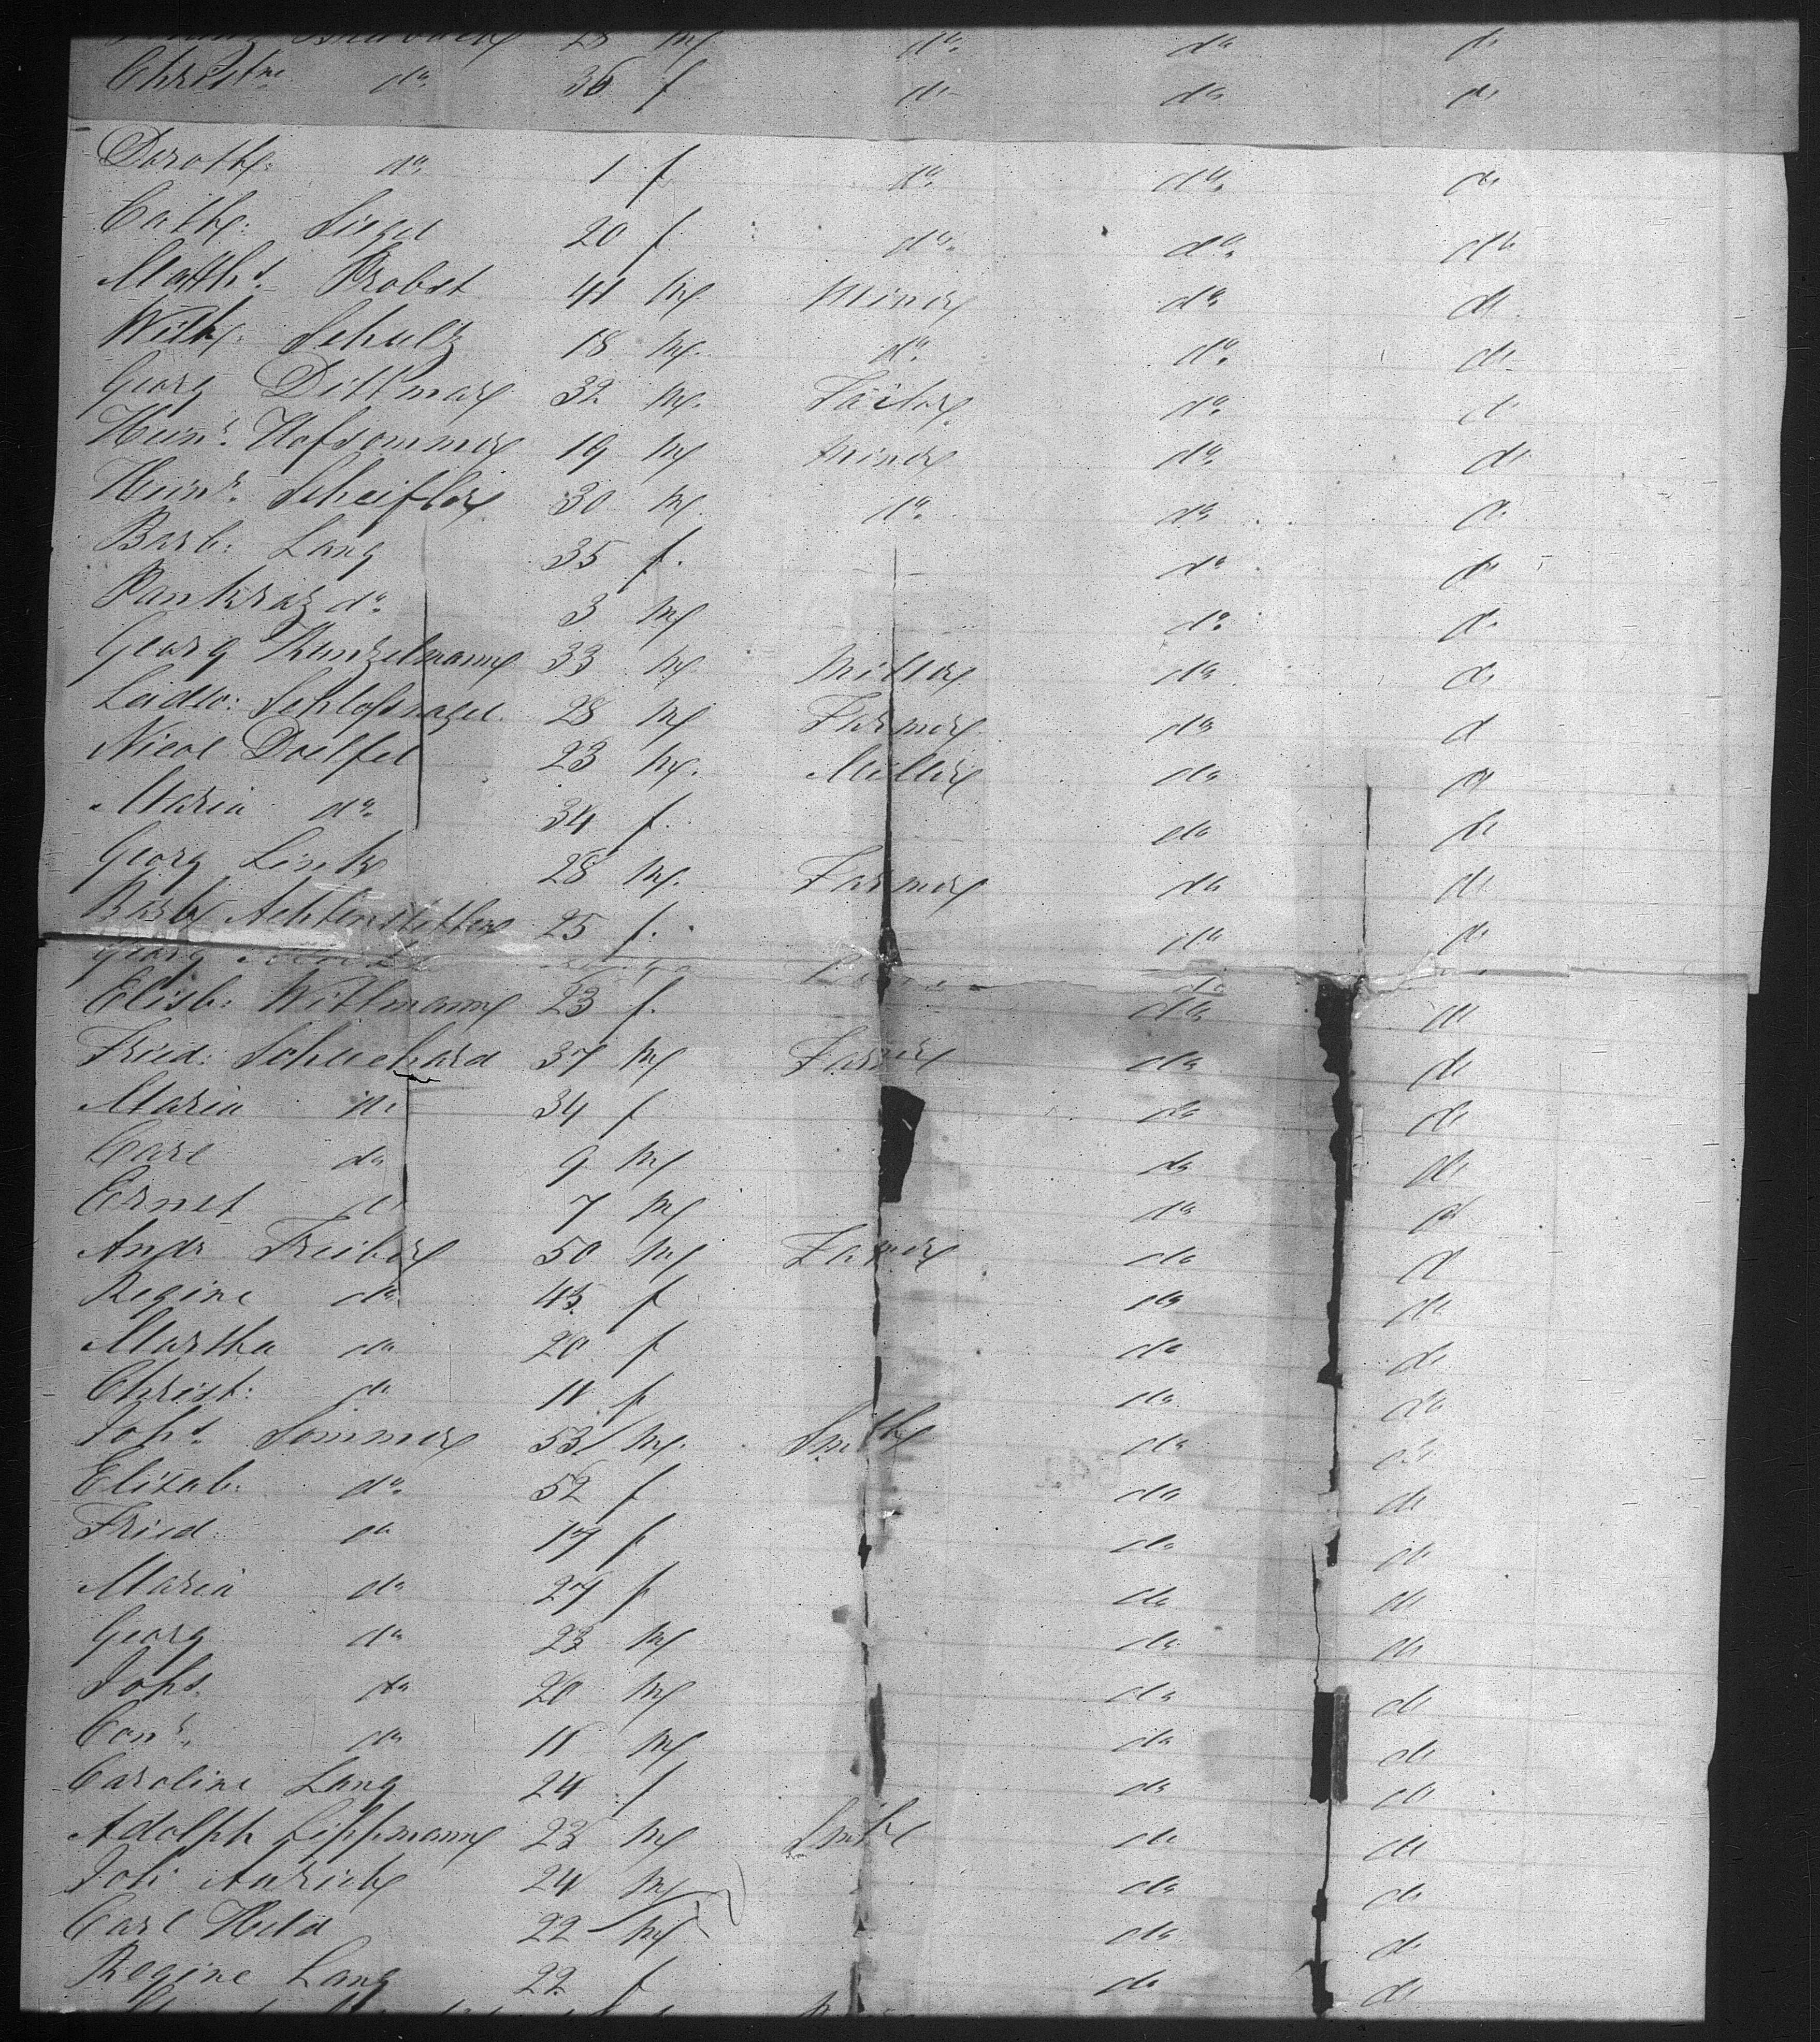 28 m do do do
Christne do 36 f do do do
Doroth: do 1 f do do do
Cath: Siegel 20 f do do do
Matths Probst 41 m Miner do do
Wilh: Schultz 18 m. do do do
Georg Dittmar 32 m. Tailor do do
Heinr. Hofsommer 19 m Miner do do
Heinr. Scheifler 30 m. do do do
Barb: Lang 35 f. do do
Pankraz do 3 m do do
Georg Kunzelmann 33 m. Miller do do
Ludw: Schlossnagel 28 m Farmer do do
Nicol Doelfel 23 m. Miller do do
Maria do 34 f. do do
Georg Link 28 m. Farmer do do
Barb Achtenstetter 25 f. do do
Georg do
Elisb: Wittmann 23 f. do do
Fried: Schuchard 37 m Farmer do do
Maria do 34 f do do
Carl do 9 m do do
Ernst do 7 m do do
Andr Freiber 50 m Farmer do do
Regine do 45 f do do
Martha do 20 f do do
Christ: do 11 f do do
Johs. Sommer 53 m. Smith do do
Elisab: do 52 f do do
Fried: do 17 f do do
Maria do 27 f do do
Georg do 23 m do do
Johs. do 20 m do do
Conr. do 11 m do do
Caroline Lang 24 f do do
Adolph Lippmann 23 m Smith do do
Joh Aurich 24 m do do
Carl Held 22 m do do
Regine Lang 22 f do do